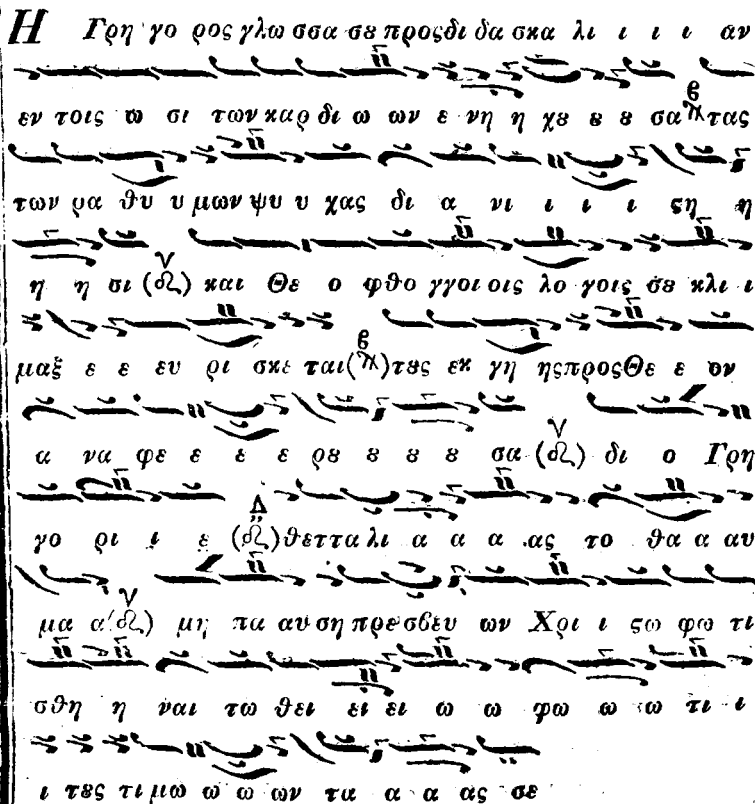 Η Γρη γο ρος γλω σσα σȣ προς δι δα σκα λι ι ι ι αν
εν τοις ω σι των καρ δι ω ων ε νη η χȣ ȣ ȣ σα τας
των ρα θυ υ μων ψυ υ χας δι α νι ι ι ι ςη η
η η σι και Θε ο φθο γγοι οις λο γοις σȣ κλι ι
μαξ ε ε ευ ρι σκε ται τȣς εκ γη ης προς Θε ε ον
α να φε ε ε ε ρȣ ȣ ȣ ȣ σα δι ο Γρη
γο ρι ι ε θεττα λι α α α ας το θα α αυ
μα α μη πα αυ ση πρε σβευ ων Χρι ι ςω φω τι
σθη η ναι τω θει ει ει ω ω φω ω ω τι ι
ι τȣς τι μω ω ω ων τα α α ας σε